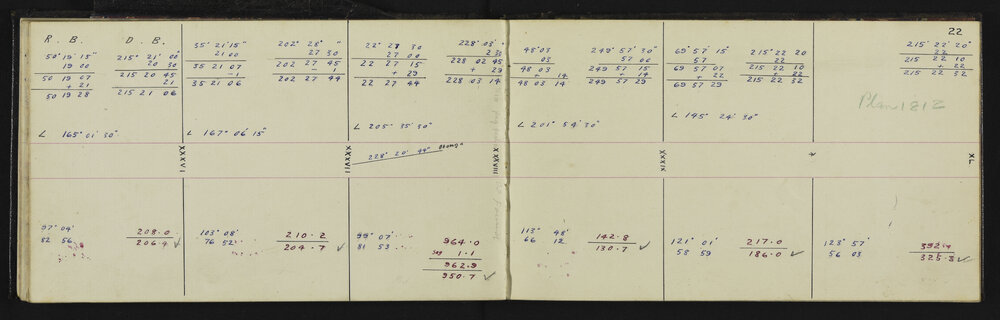 22
R. B. D. B.
50° 19 15"
19 00
50 19 07
+ 21
50 19 28
215° 21' 00"
20 30
215 20 45
21
215 21 06
∠ 165° 01' 30"
35° 21' 15"
21 00
35 21 07
-1
35 21 06
202° 28' "
27 30
202 27 45
- 1
202 27 44
∠ 167° 06' 15"
22° 27 30
27 00
22 27 15
+ 29
22 27 44
228° 03' "
2 30
228 02 45
+ 29
228 03 14
∠ 205° 35' 30"
48° 03
03
48 03
+ 14
48 03 14
249° 57' 30"
57 00
249 57 15
+ 14
249 57 29
∠ 201° 54' 30"
69° 57' 15"
57
69 57 07
+ 22
69 57 29
215° 22 20
22
215 22 10
+ 22
215 22 32
∠ 145° 24' 30"
215° 22' 20"
22
215 22 10
+ 22
215 22 32
Plan 1812
XXXVI
XXXVII
228° 20' 44"
XXXVIII
XXXIX
XL
97° 04'
82 56
208.0
206.4 ✓
103° 08'
76 52
210.2
204.7 ✓
99° 07'
81 53
964.0
Sag 1.1
962.9
950.7 ✓
113° 48'
66 12
142.8
130.7 ✓
121° 01'
58 59
217.0
186.0 ✓
123° 57'
56 03
392.4
325.3 ✓